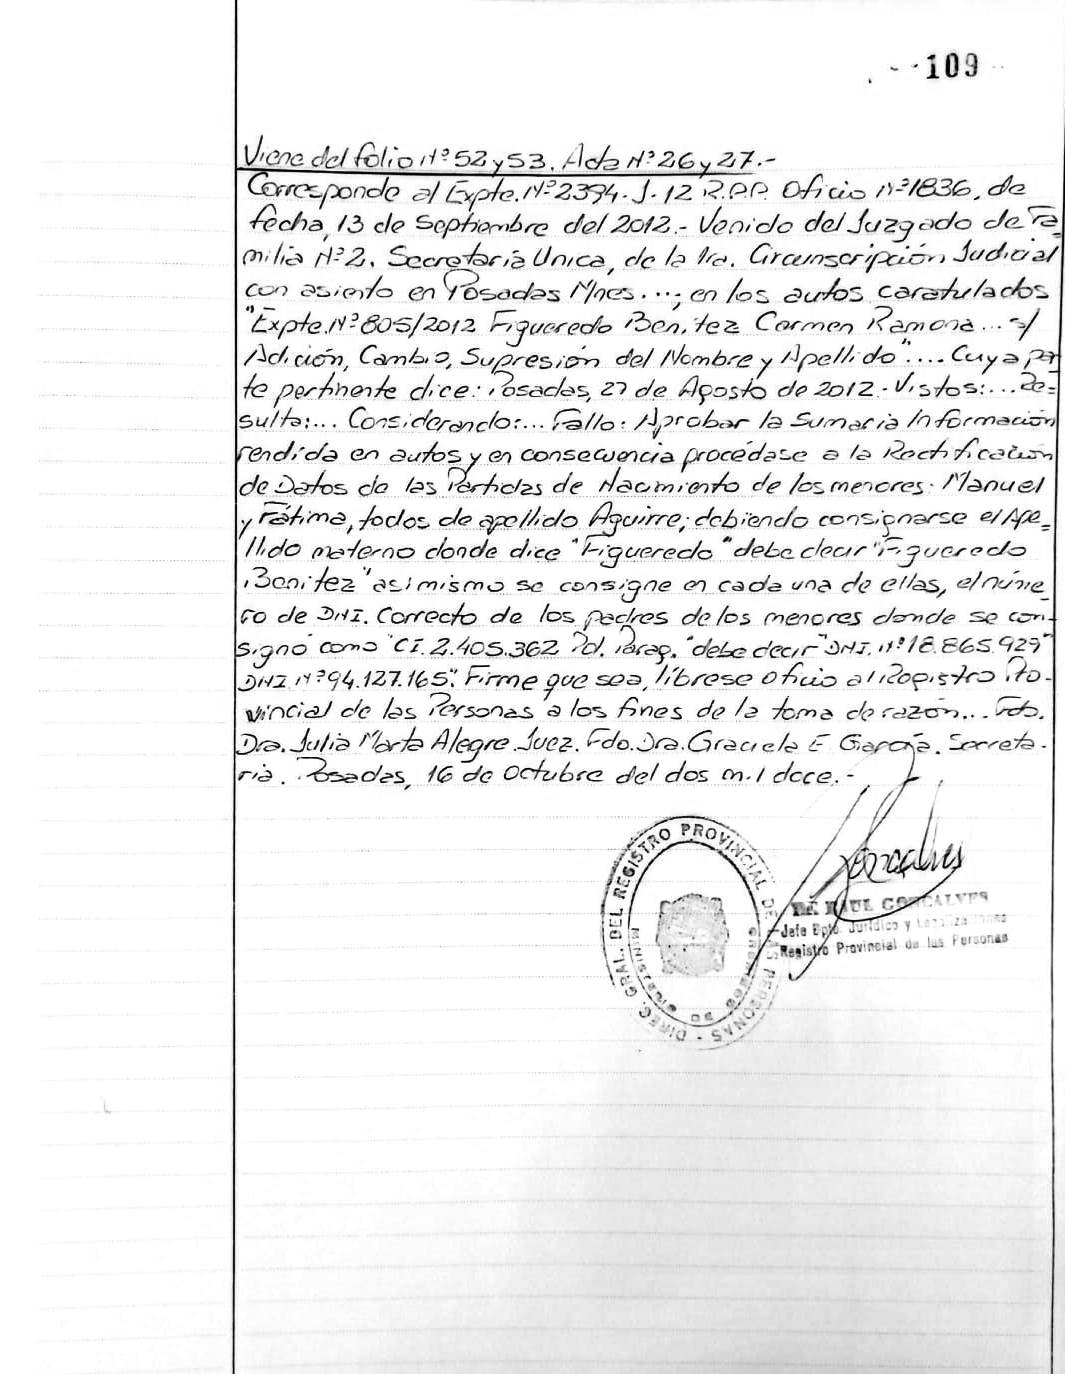 109
Viene del folio Nº 52 y 53. Acta Nº 26 y 27.-
Corresponde al Expte. Nº 2394. J. 12 R.P.P. Oficio Nº 1836, de
fecha, 13 de Septiembre del 2012.- Venido del Juzgado de Fa=
milia Nº 2. Secretaria Unica, de la 1ra. Circunscripción Judicial
con asiento en Posadas Mnes...; en los autos caratulados
"Expte. Nº 805/2012 Figueredo Benitez Carmen Ramona... s/
Adición, Cambio, Supresión del Nombre y Apellido".... Cuya par
te pertinente dice: Posadas, 27 de Agosto de 2012.- Vistos:... Re=
sulta:... Considerando:... Fallo: Aprobar la Sumaria Información
rendida en autos y en consecuencia procédase a la Rectificación
de Datos de las Partidas de Nacimiento de los menores: Manuel
y Fátima, todos de apellido Aguirre; debiendo consignarse el Ape=
llido materno donde dice "Figueredo" debe decir "Figueredo
Benitez" asimismo se consigne en cada una de ellas, el núme_
ro de DNI. Correcto de los padres de los menores donde se con-
signó como "CI. 2.405.362 Pol. Parag." debe decir "DNI. Nº 18.865.929"
DNI. Nº 94.127.165". Firme que sea, líbrese oficio al Registro Pro-
vincial de las Personas a los fines de la toma de razón... Fdo.
Dra. Julia Marta Alegre Juez. Fdo. Dra. Graciela E. García. Secreta-
ria. Posadas, 16 de Octubre del dos mil doce.-
DIREC. GRAL. DEL REGISTRO PROVINCIAL DE LAS PERSONAS -
MINISTERIO DE GOBIERNO
Goncalves
RAUL GONCALVES
Jefe Dpto. Jurídico y Legalizaciones
Registro Provincial de las Personas